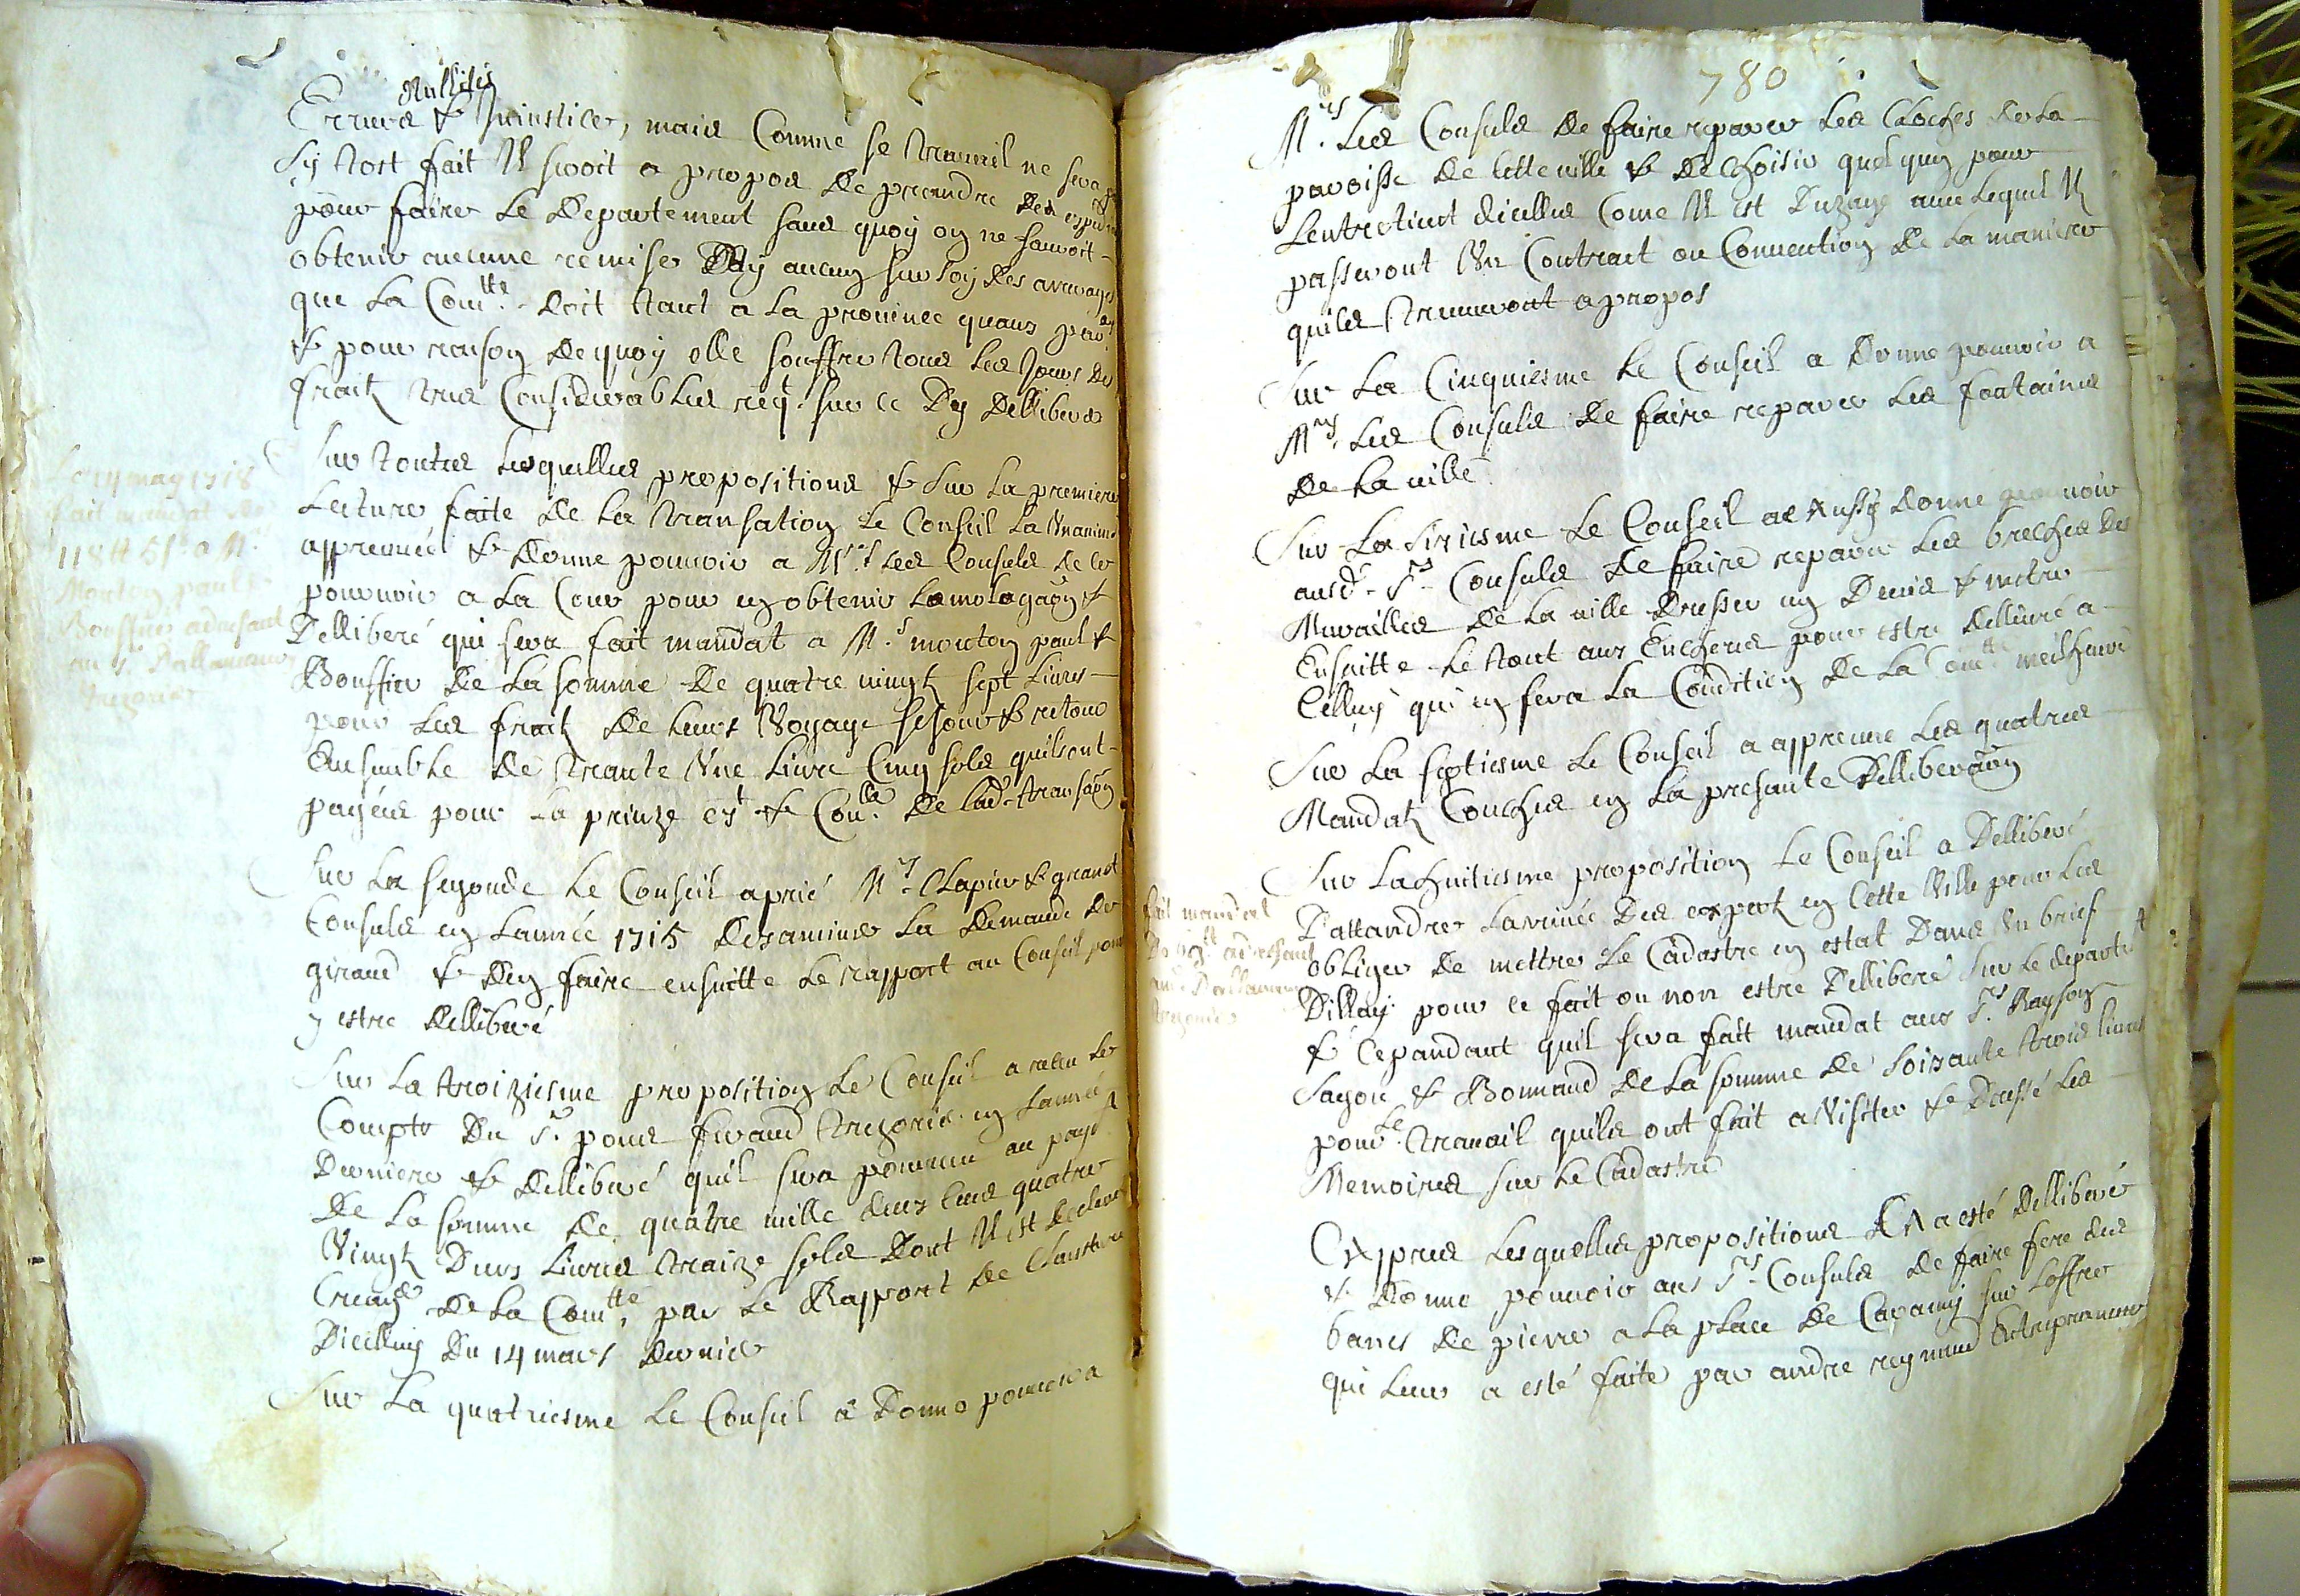 nullités
Erreurs & Iniustices, mais Comme se travail ne sera
sy tost fait Il seroit a propos De preandre Des
pour faire Le Departement sans quoy on ne sauroit
obtenir aucune remise Ny aucun sursoy des arrerages
que La Com.tte Doit tant a la province quaux
& pour raison De quoy elle souffre tous Les Jours Des
fraix tres Considerables req.t sur ce Dy Delliberer
Sur toutes Lesquelles propositions & sur La premiere
Lecture faite De La transation Le Conseil La
appreuuée & Donne pouuoir a M.rs Les Consuls De ce
pouruoir a La Cour pour en obtenir Lomologaon &
Delliberé qui sera fait mandat a M.s mouton paul &
Bouffier De La somme De quatre vingt sept Livres
pour Les fraix De Leurs Voyage sejour & retour
Ensemble De trante Une Livre Cinq sols quils ont
payées pour La prinze & Con.lle De lad. transaon
Le 14 may 1718
fait mandat de
118 ₶ 5 s. a M.
Mouton paul &
Bouffier adressant
au s.r
trezorier
Sur La segonde Le Conseil a prié M.rs Clapier & granet
Consuls en Lannée 1715 Dexaminer La Demande De
giraud & Den faire ensuitte Le rapport au Conseil pour
y estre Delliberé
Sur La troiziesme proposition Le Conseil a Le
Compte Du S.r pons feraud trezorier en Lannée
Derniere & Delliberé quil sera pourueu au paye.t
De La somme De quatre mille deux Cens quatre
Vingt Deux Livres traize sols Dont Il est
Crean.r De La Com.tte par Le Rapport De Clausture
Dicelluy Du 14 mars dernier
Sur La quatriesme Le Conseil a Donné pouuoir a
780
M.rs Les Consuls De faire reparer Les Cloches de La
paroisse De Cette ville & De Choisir quelqun pour
Lentretient dicelles Come Il est Duzage auec Lequel Il
passeront Un Contract ou Conuention De La maniere
quils treuueront a propos
Sur La Cinquiesme Le Conseil a Donné pouuoir a
M.rs Les Consuls De faire reparer Les fontaines
De La ville
Sur La Siziesme Le Conseil a Aussy donné pouuoir
ausd. S.rs Consuls De faire reparer Les breches Des
Murailles De La ville Dresser un Deuis & metre
Ensuitte Le tout aux Encheres pour estre dellivré a
Celluy qui en fera La Condition De La Com.tte meilheure
Sur La septiesme Le Conseil a appreuué Les quatres
Mandatz Couches en La presante Delliberaon
Sur La huitiesme proposition Le Conseil a Delliberé
Dattandre Larriuée Des expertz en Cette Ville pour Les
obliger De mettre Le Cadastre en estat Dans Un brief
Dillay pour ce fait ou non estre Delliberé Sur Le departe.t
& Cepandant quil sera fait mandat aux S.rs Raysson
Sagou & Bonnaud De La somme De Soixante trois livres
pour Le travail quils ont fait a Visiter & Dressé Les
Memoires sur Le Cadastre
fait mandat
adressant
trezorier
Appres Lesquelles propositions Il a esté Delliberé
& Donné pouuoir aux S.rs Consuls De faire fere des
bancs De pierre a La place De Caramy sur Loffre
qui Leur a esté faite par andre reynaud Entrepreneur